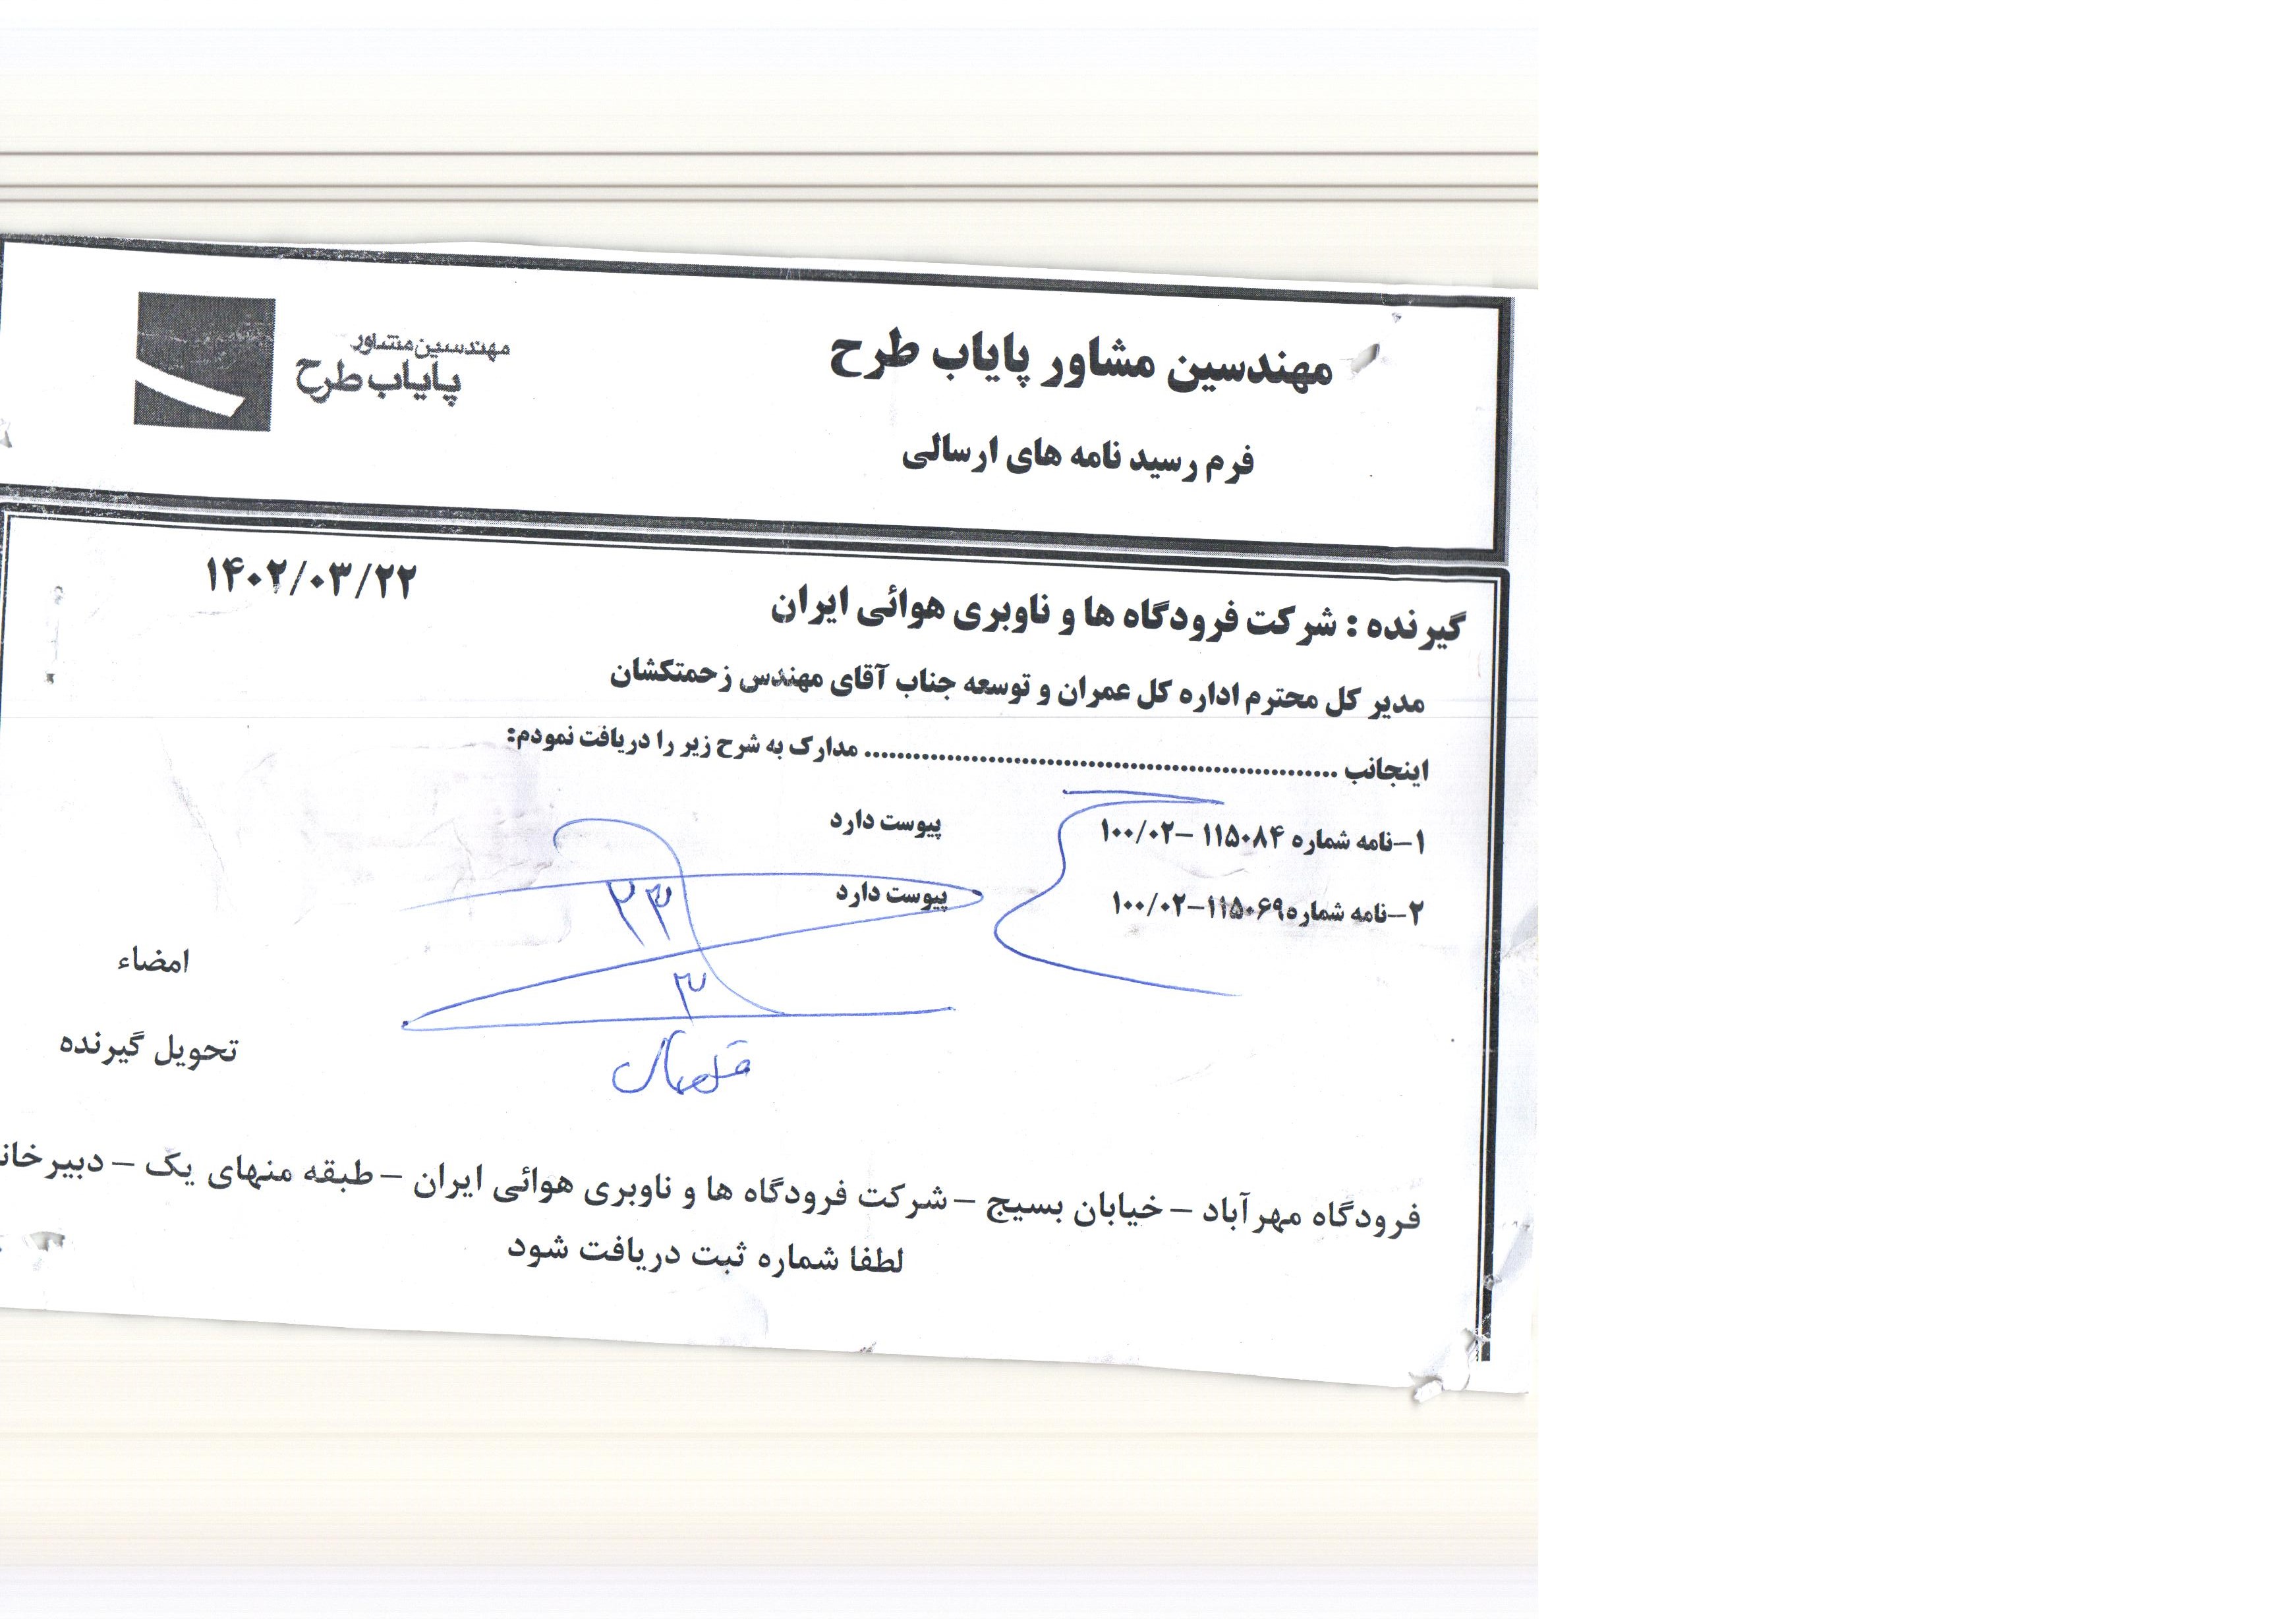 مهندسین مشاور پایاب طرح
مهندسین مشاور
پایاب طرح
فرم رسید نامه های ارسالی
۱۴۰۲/۰۳/۲۲
گیرنده : شرکت فرودگاه ها و ناوبری هوائی ایران
مدیر کل محترم اداره کل عمران و توسعه جناب آقای مهندس زحمتکشان
اینجانب ........................................................................ مدارک به شرح زیر را دریافت نمودم:
۱-نامه شماره ۱۱۵۰۸۴ -۱۰۰/۰۲ پیوست دارد
۲-نامه شماره۱۱۵۰۶۹-۱۰۰/۰۲ پیوست دارد
۲۳
۳
امضاء
تحویل گیرنده
فرودگاه مهرآباد – خیابان بسیج – شرکت فرودگاه ها و ناوبری هوائی ایران – طبقه منهای یک – دبیرخان
لطفا شماره ثبت دریافت شود